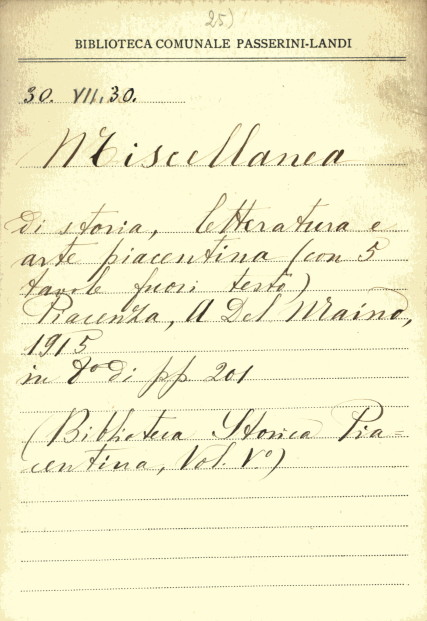 25)
BIBLIOTECA COMUNALE PASSERINI-LANDI
30. VII.30.
Miscellanea
di storia, letteratura e
arte piacentina (con 5
tavole fuori testo)
Piacenza, A Del Maino,
1915
in 8° di pp 201
(Biblioteca Storica Pia=
centina, Vol. V.°)